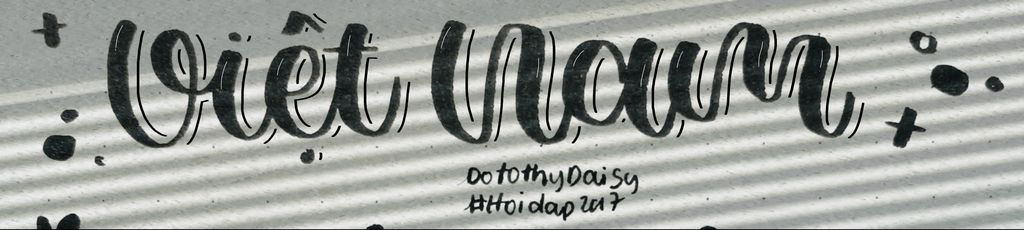 Việt Nam
DotothyDaisy
#Hoidap247